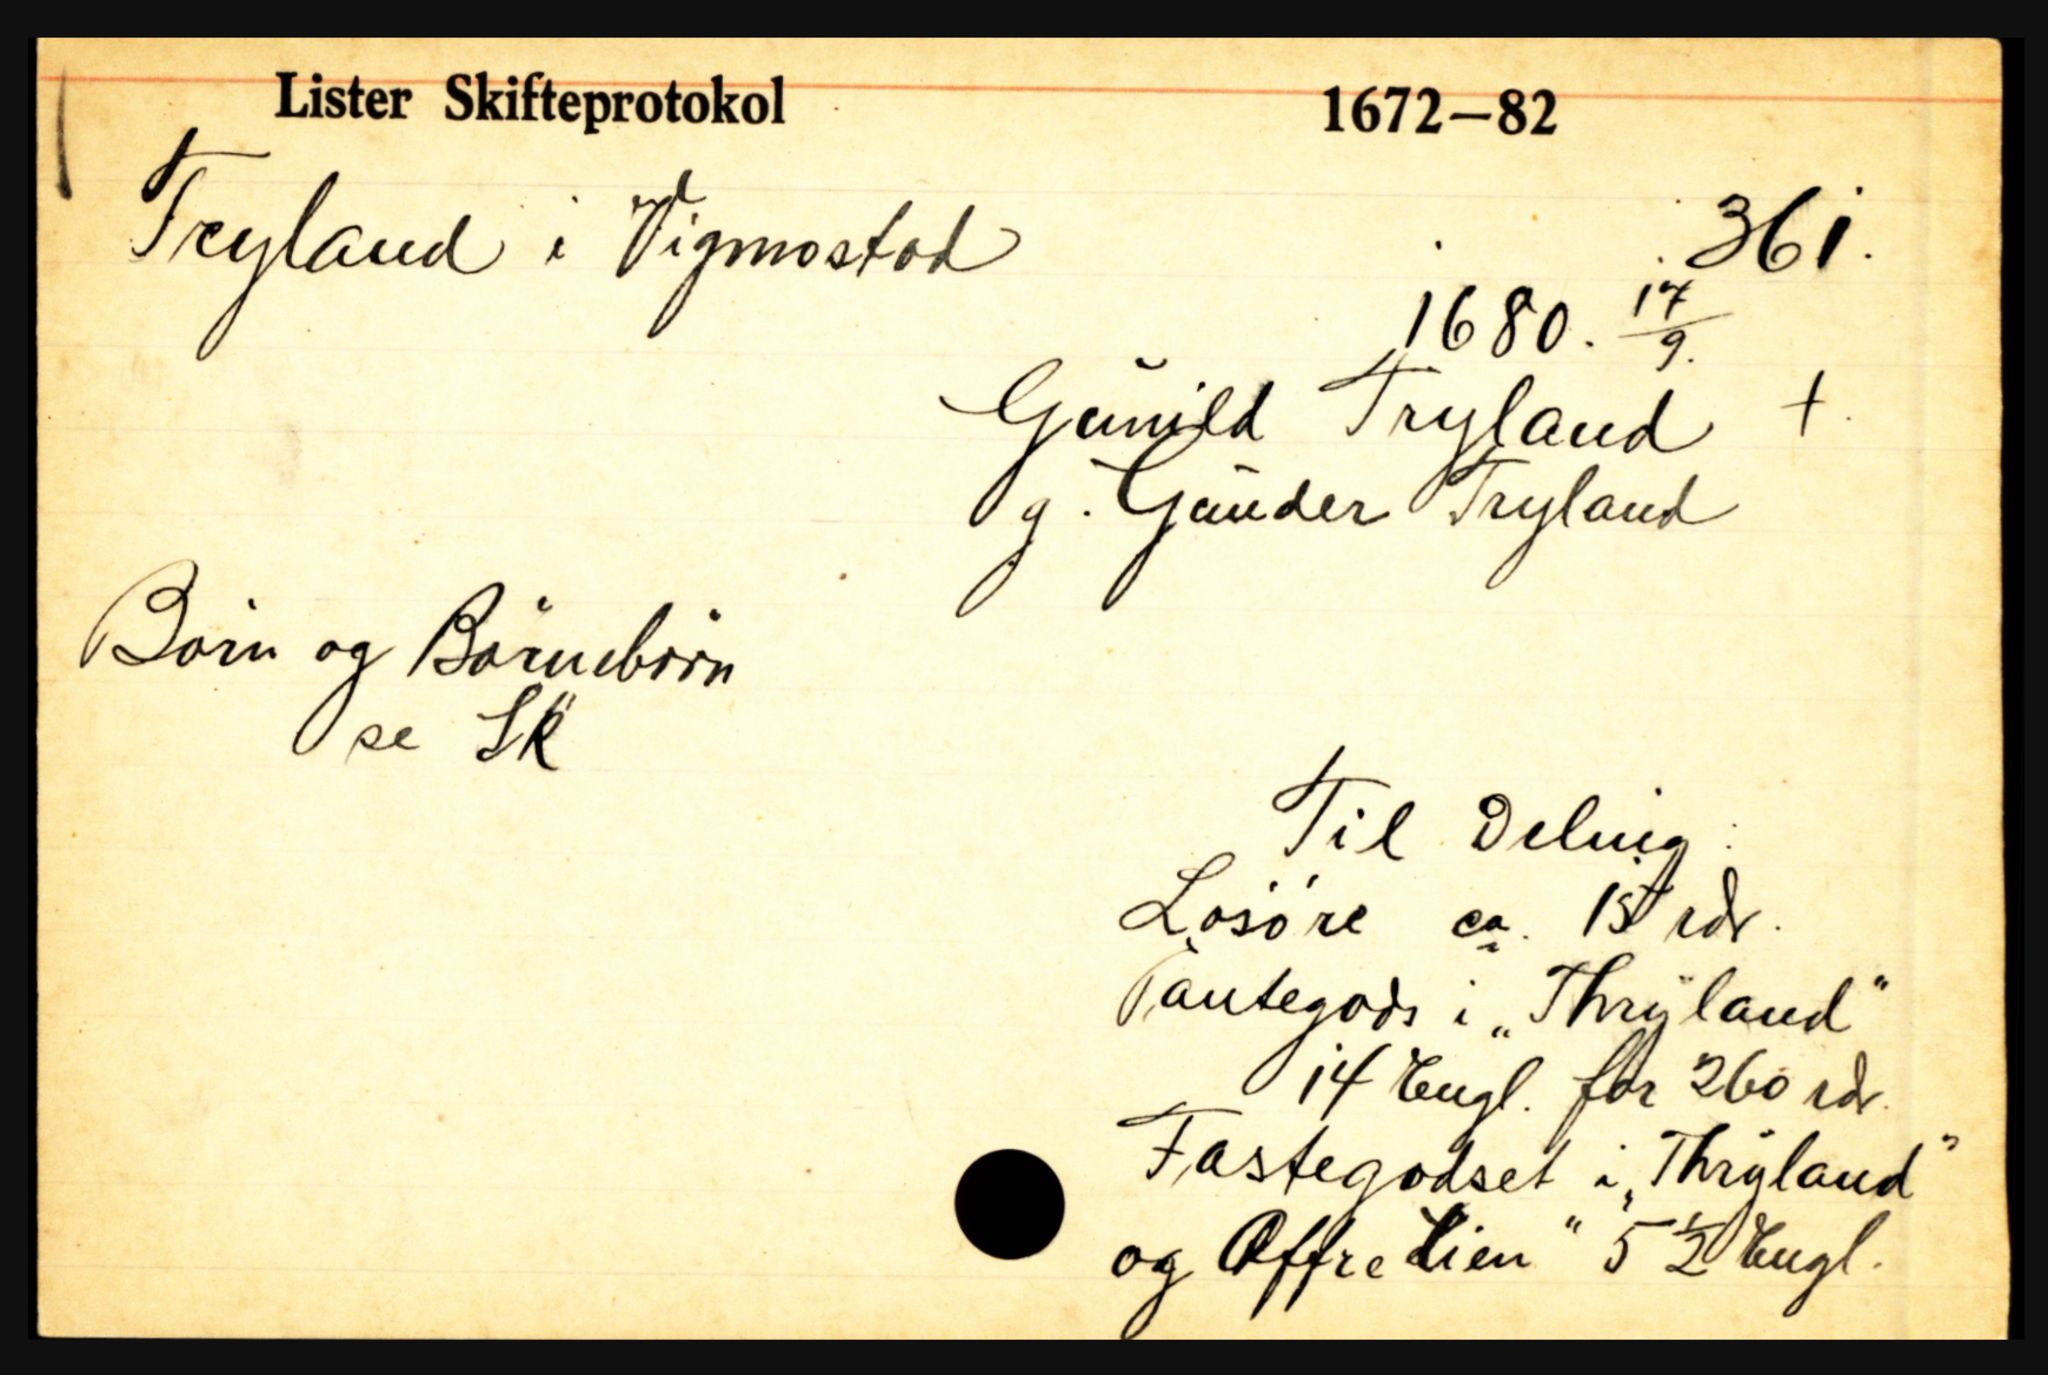 Lister Skifteprotokol 1672–82
Tryland i Vigmostad
361.
1680. 17/9.
Gunild Tryland †.
g. Gunder Tryland
Börn og Börnebörn
se Sk
Til Deling:
Lösöre ca. 15 rdr.
Pantegods i „Thrÿland"
14 Engl. for 260 rdr.
Fastegodset i „Thrÿland"
og Offre Lien" 5 1/2 Engl.